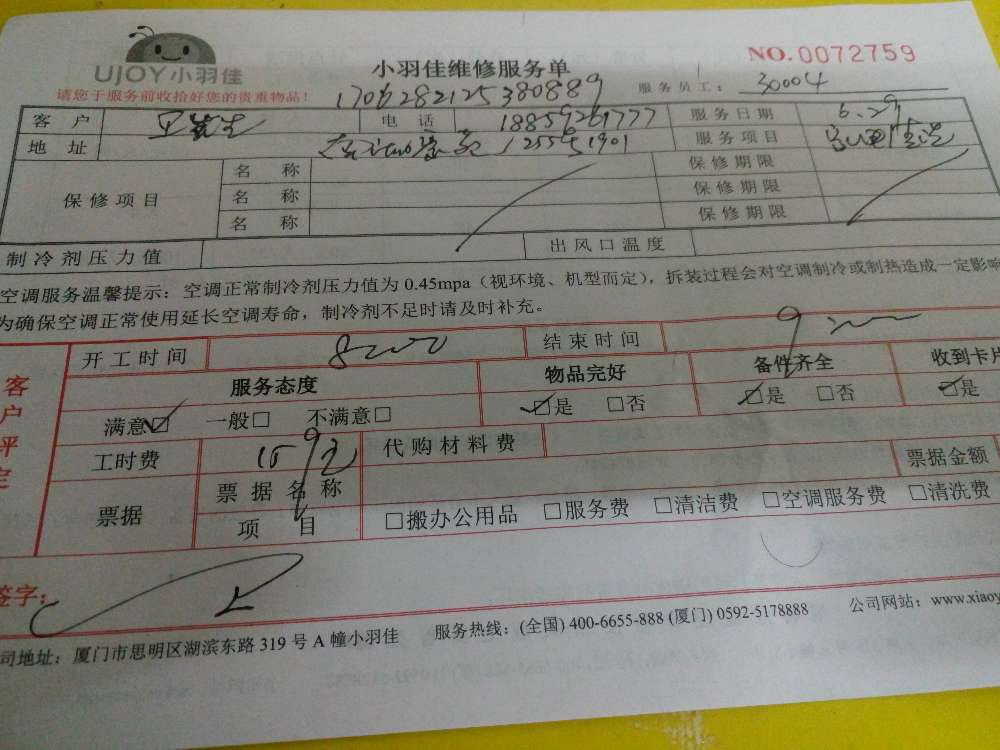 UJOY小羽佳
小羽佳维修服务单
NO.0072759
请您于服务前收拾好您的贵重物品!
1706282125380889
服务员工: 30004
客户 电话 18859261777 服务日期 6.29
地址 1901 服务项目
保修项目 名称 保修期限
名称 保修期限
名称 保修期限
制冷剂压力值 出风口温度
空调服务温馨提示:空调正常制冷剂压力值为 0.45mpa(视环境、机型而定),拆装过程会对空调制冷或制热造成一定影响
为确保空调正常使用延长空调寿命,制冷剂不足时请及时补充。
客户评定
开工时间 8:00 结束时间 9:
服务态度 物品完好 备件齐全 收到卡片
满意☑ 一般□ 不满意□ ☑是 □否 ☑是 □否 ☑是
工时费 代购材料费
票据 票据名称 票据金额
项目 □搬办公用品 □服务费 □清洁费 □空调服务费 □清洗费
签字:
司地址:厦门市思明区湖滨东路 319 号 A 幢小羽佳 服务热线:(全国) 400-6655-888 (厦门) 0592-5178888 公司网站:www.xiaoy